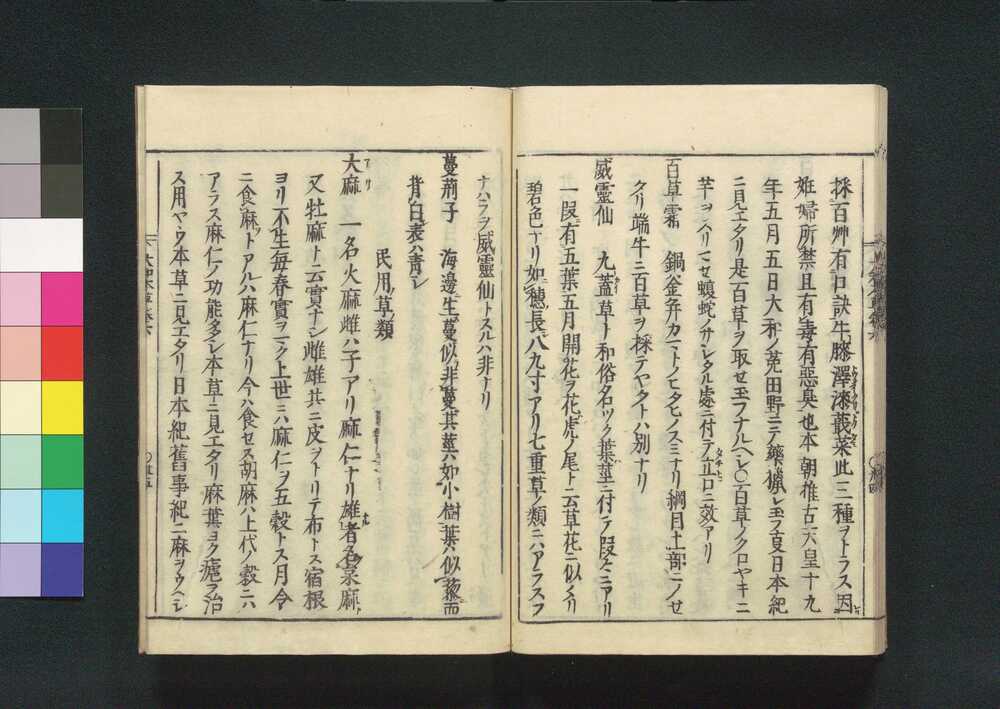 採百艸有口訣牛膝澤漆蕺菜此三種ヲトラス因
姙婦所禁且有毒有惡臭也本朝推古天皇十九
年五月五日大和ノ菟田野ニテ藥獵シ玉フ夏日本紀
ニ見エタリ是百草ヲ取セ玉フナルヘシ〇百草ノクロヤキニ
芋ヲ入リニセ蝮蛇ノサシタル處ニ付テ立口ニ效アリ
百草霜 鍋釜弁カニトノヒタヒノスミナリ綱目土部ニノセ
タリ端午ニ百草ヲ採テヤクトハ別ナリ
威靈仙 九蓋草ト和俗名ツク葉莖ニ付テ段々ニアリ
一段有五葉五月開花ヲ花虎ノ尾ト云草花ニ似タリ
碧色ナリ如穗長八九寸アリ七重草ノ類ニハアラスフ
ナハラヲ威靈仙トスルハ非ナリ
蔓荊子 海邊生蔓似非蔓其莖ハ如小樹葉ハ似薐而
背白表ハ青シ
民用草類
大麻 一名火麻雌ハ子アリ麻仁ナリ雄者名枲麻
又牡麻ト云實ナシ雌雄共ニ皮ヲトリテ布トス宿根
ヨリ不生毎春實ヲマク上世ニハ麻仁ヲ五穀トス月令
ニ食麻トアルハ麻仁ナリ今ハ食セス胡麻ハ上代ノ穀ニハ
アラス麻仁ノ功能多シ本草ニ見エタリ麻葉ヨク瘧ヲ治
ス用ヤウ本草ニ見エタリ日本紀舊事紀ニ麻ヲウヘシ